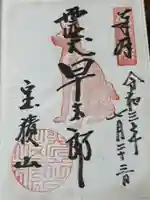 令和三年
七月二十三日
霊犬早太郎
宝積山